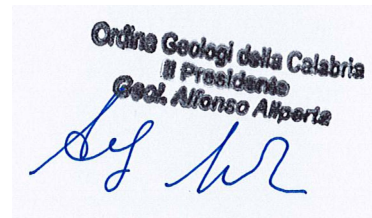 Ordine Geologi della Calabria
Il Presidente
Geol. Alfonso Aliperta